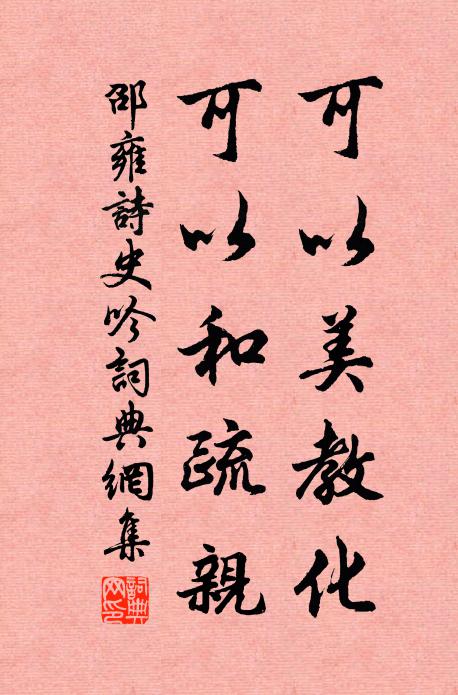 可以美教化
可以和疏親
邵雍詩史吟詞典網集
詞典網印